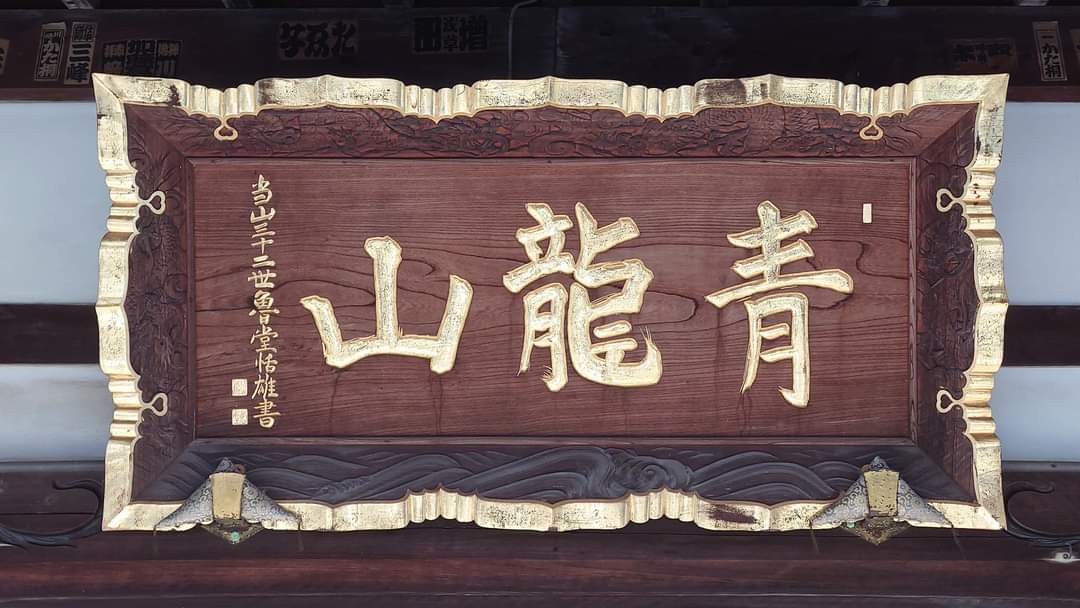 青龍山
当山三十二世魯堂恬雄書